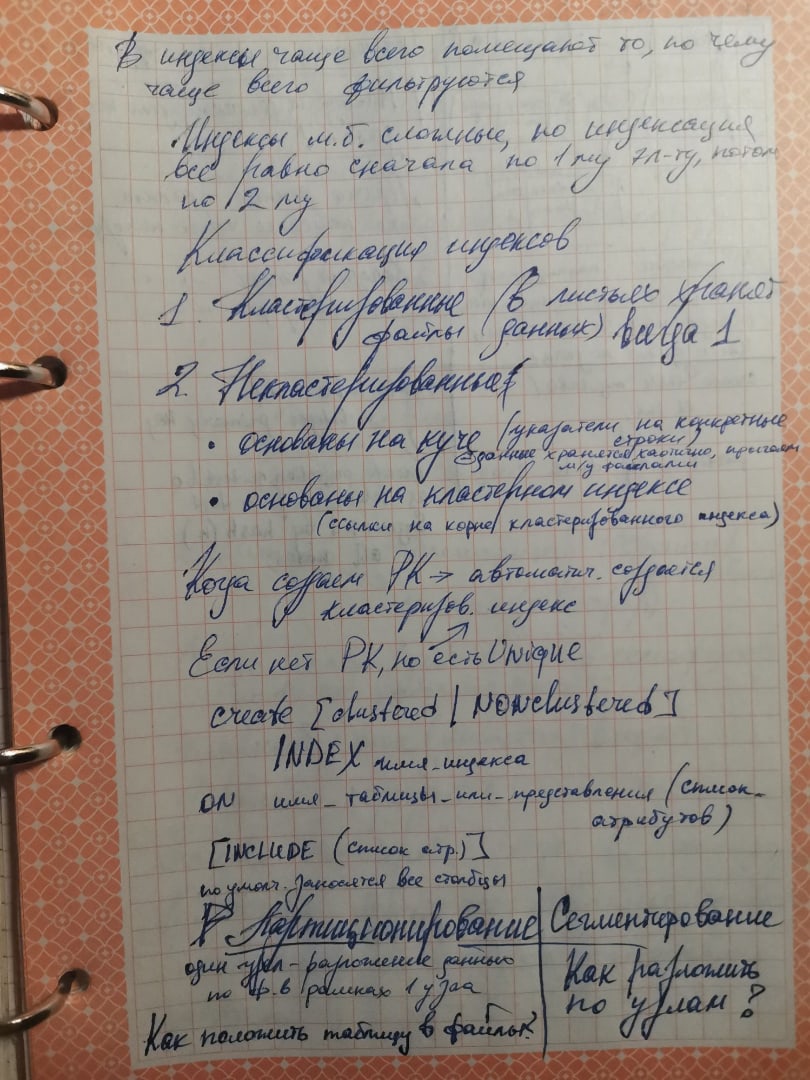 В индексы чаще всего помещают то, по чему
чаще всего фильтруются
Индексы м.б. сложные, но индексация
все равно сначала по 1 му эл-ту, потом
по 2 му
Классификация индексов
1. Кластеризованные (в листьях хранят
файлы данных) всегда 1
2. Некластеризованные
• основаны на куче (указатели на конкретные
строки)
данные хранятся хаотично, прыгаем
м/у файлами
• основаны на кластерном индексе
(ссылки на корне кластеризованного индекса)
Когда создаем PK → автоматич. создается
кластеризов. индекс
Если нет PK, но есть Unique
create [clustered | NONclustered]
INDEX имя_индекса
ON имя_таблицы_или_представления (список_
атрибутов)
[INCLUDE (список атр.)]
по умолч. заносятся все столбцы
Партиционирование
один узел - разложение данных
по ф. в рамках 1 узла
Как положить таблицу в файлы?
Сегментирование
Как разложить
по узлам?